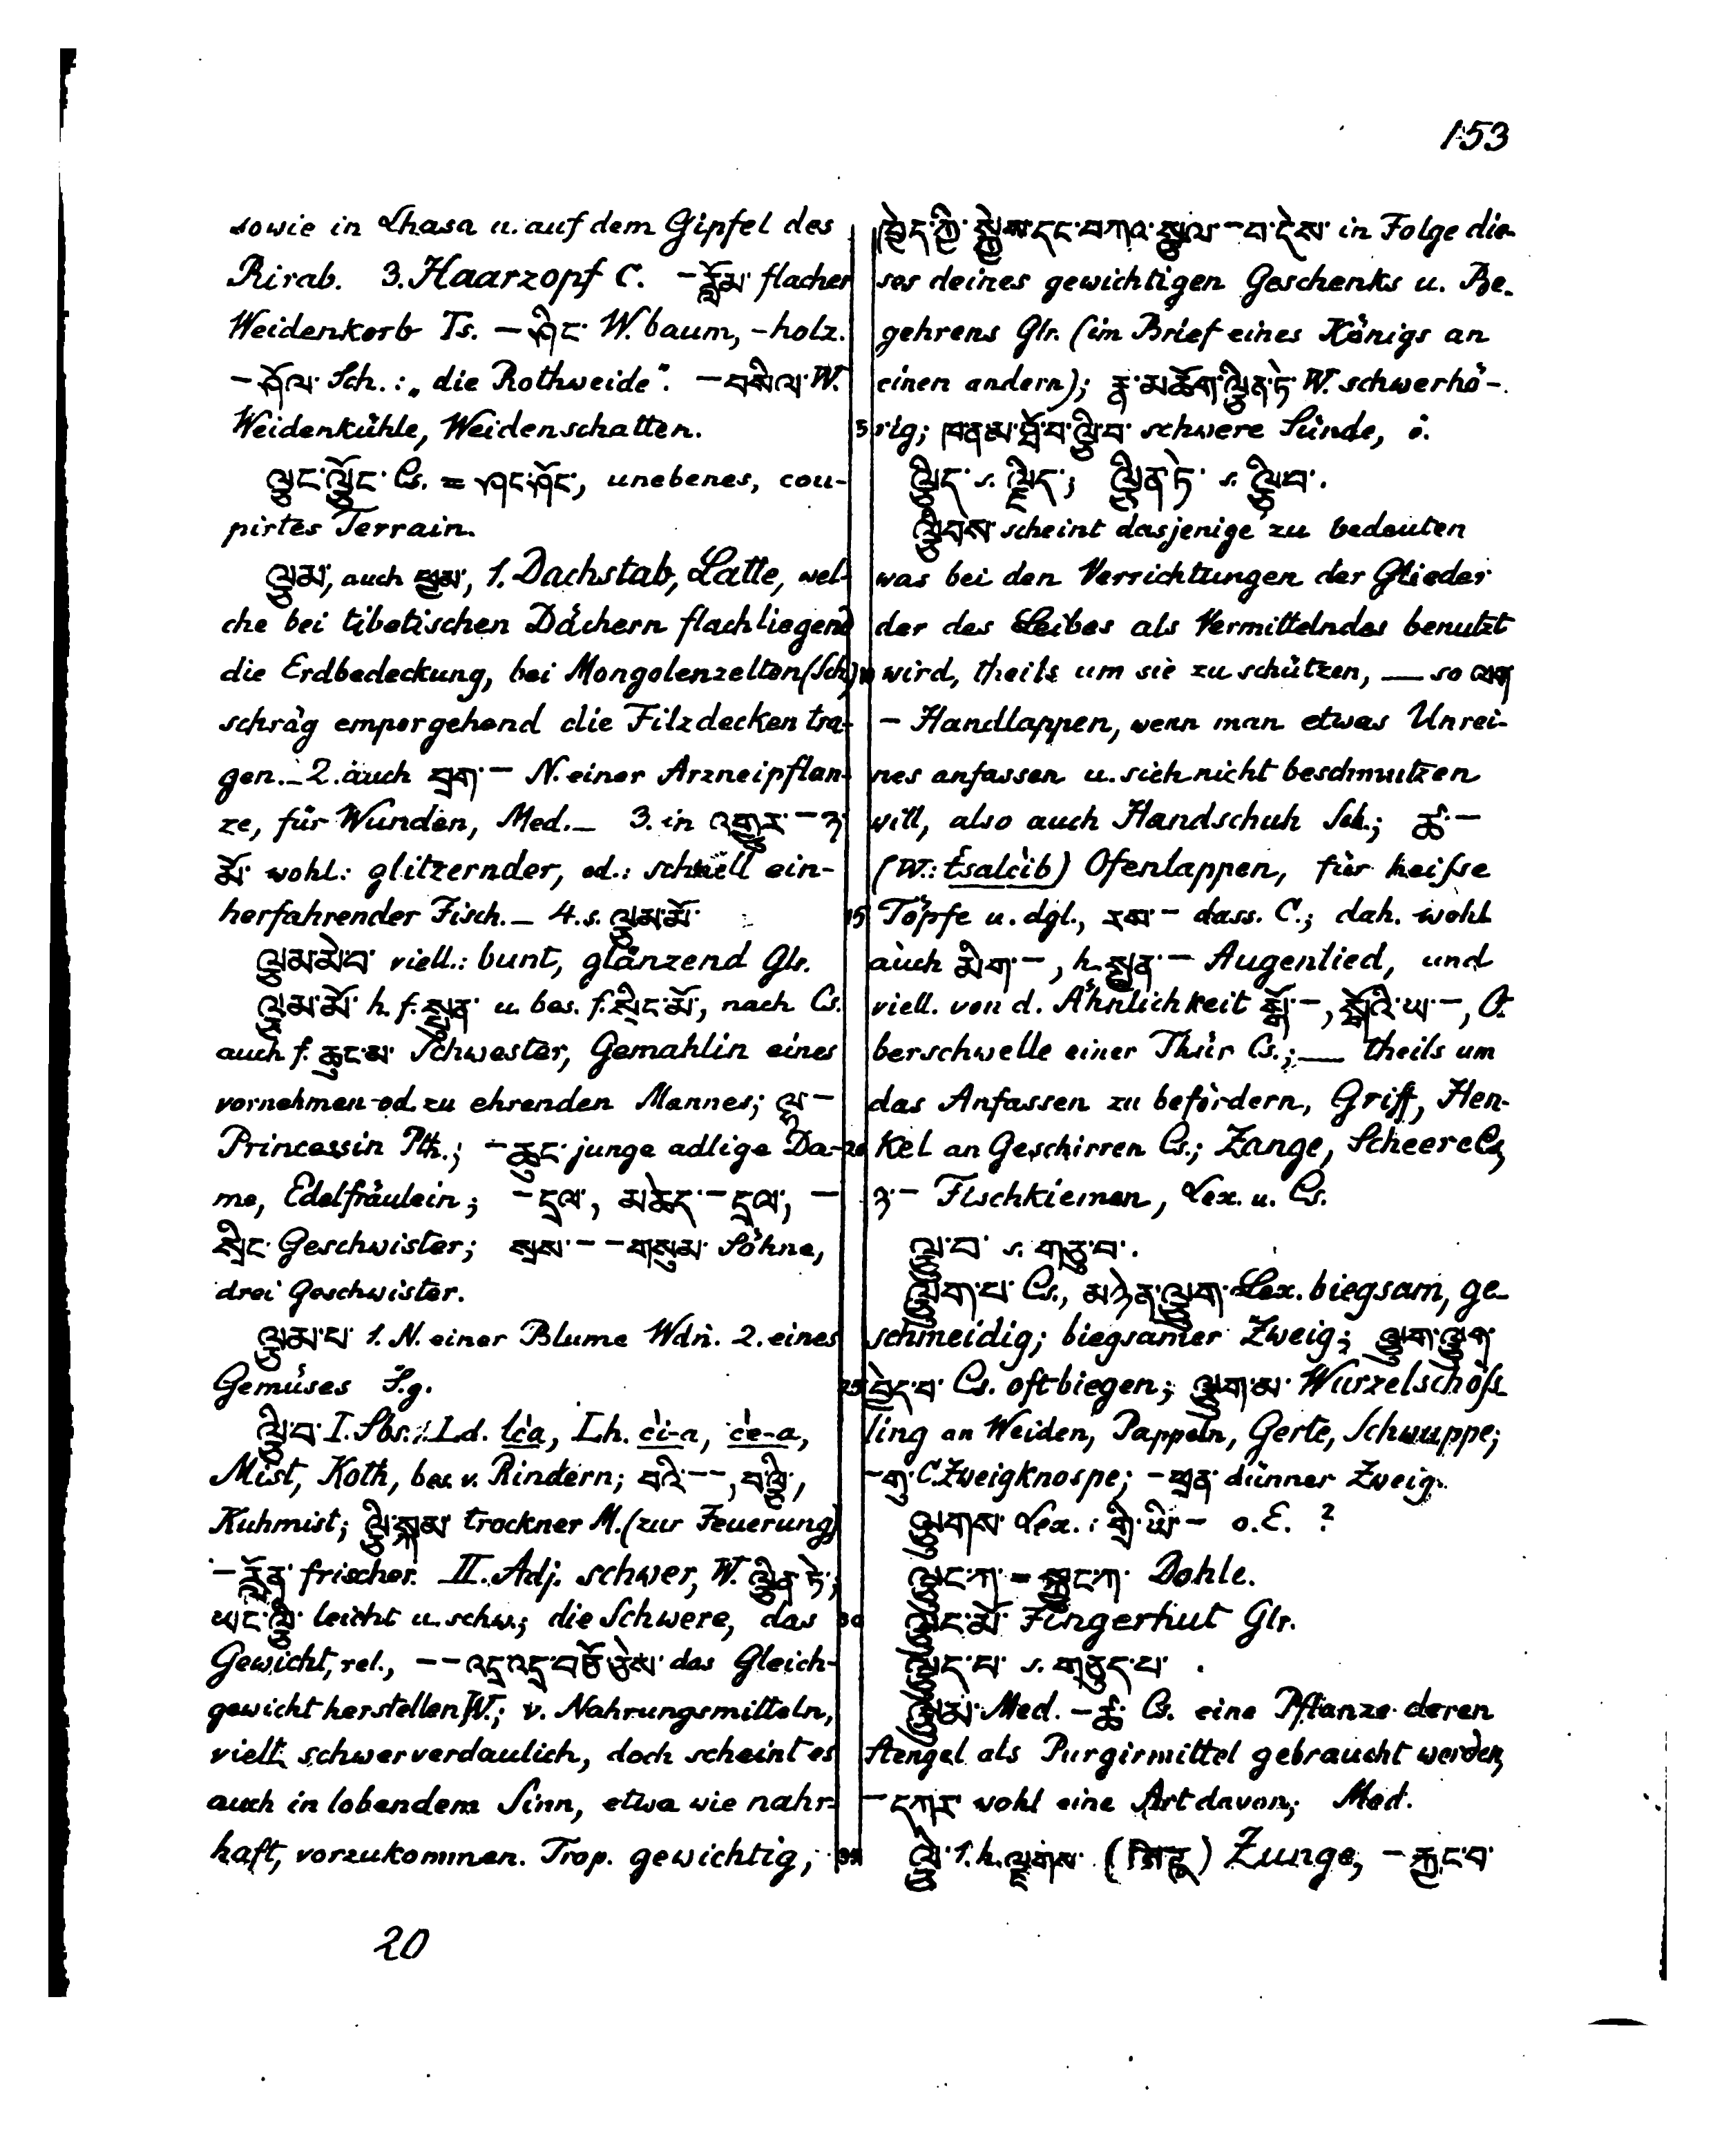 153
sowie in Lhasa u. auf dem Gipfel des
Rirab. 3. Haarzopf C. – སློམ་ flacher
Weidenkorb Ts. – ཤིང་ W. baum, -holz.
– ཤོལ་ Sch.: „die Rothweide". – བསིལ་ W.
Weidenkühle, Weidenschatten.
ལྕང་ལྕོང་ Cs. = ཤང་ཤོང་, unebenes, cou-
pirtes Terrain.
ལྕམ་, auch ཕྱམ་, 1. Dachstab, Latte, wel-
che bei tibetischen Dächern flachliegend
die Erdbedeckung, bei Mongolenzelten (Sch)
schräg emporgehend die Filzdecken tra-
gen. – 2. auch བྲག་ – N. einer Arzneipflan-
ze, für Wunden, Med. – 3. in འགྱུར་ – ཉ་
མོ་ wohl: glitzernder, od.: schnell ein-
herfahrender Fisch. – 4. s. ལྕམ་མོ་
ལྕམ་མེ་བ་ viell.: bunt, glänzend Glr.
ལྕམ་མོ་ h. f. སྤུན་ u. bes. f. སྲིང་མོ་, nach Cs.
auch f. ཆུང་མ་ Schwester, Gemahlin eines
vornehmen od. zu ehrenden Mannes; ལྷ་ –
Princessin Pth.; – ཆུང་ junge adlige Da-
me, Edelfräulein; – དྲལ་, མཆེད་ – དྲལ་, –
སྲིང་ Geschwister; སྲས་ – – གསུམ་ Söhne,
drei Geschwister.
ལྕམ་པ་ 1. N. einer Blume Wdn. 2. eines
Gemüses S.g.
ལྕི་བ་ I. Sbs.: Ld. lc̀a, Lh. c̀i-a, c̀e-a,
Mist, Koth, bes. v. Rindern; བའི་ – –, བ་ལྕི་,
Kuhmist; ལྕི་སྐམ་ trockner M. (zur Feuerung)
– རློན་ frischer. II. Adj. schwer, W. ལྕིན་ཏེ་;
ཡང་ལྕི་ leicht u. schw.; die Schwere, das
Gewicht, rel., – – འདྲ་འདྲ་བཅོ་ཅེས་ das Gleich-
gewicht herstellen W.; v. Nahrungsmitteln,
viell. schwer verdaulich, doch scheint es
auch in lobendem Sinn, etwa wie nahr-
haft, vorzukommen. Trop. gewichtig,
20
ཁྱེད་ཀྱི་སྐྱེས་དང་བཀའ་སྩལ་ – བ་དེས་ in Folge die-
ses deines gewichtigen Geschenks u. Be-
gehrens Glr. (im Brief eines Königs an
einen andern); རྣ་མཆོག་ལྕིན་ཏེ་ W. schwerhö-
5 rig; ཁ་ན་མ་ཐོ་བ་ལྕི་བ་ schwere Sünde, ö.
ལྕིད་ s. ལྗིད་; ལྕིན་ཏེ་ s. ལྕི་བ་.
ལྕིབས་ scheint dasjenige zu bedeuten
was bei den Verrichtungen der Glieder
der des Leibes als Vermittelndes benutzt
10 wird, theils um sie zu schützen, — so ལག་
– Handlappen, wenn man etwas Unrei-
nes anfassen u. sich nicht beschmutzen
will, also auch Handschuh Sch.; ཚ་ –
(W.: tsalcib) Ofenlappen, für heisse
15 Töpfe u. dgl., རས་ – dass. C.; dah. wohl
auch མིག་ –, h. སྤྱན་ – Augenlied, und
viell. von d. Ähnlichkeit སྒོ་ –, སྒོའི་ཡ་ –, O-
berschwelle einer Thür Cs.; — theils um
das Anfassen zu befördern, Griff, Hen-
20 kel an Geschirren Cs.; Zange, Scheere Cs,
ཉ་ – Fischkiemen, Lex. u. Cs.
ལྕུ་བ་ s. གཅུ་བ་.
ལྕུག་པ་ Cs., མཉེན་ལྕུག་ Lex. biegsam, ge-
schmeidig; biegsamer Zweig; ལྕུག་ལྕུག་
25 བྱེད་པ་ Cs. oft biegen; ལྕུག་མ་ Wurzelschöss-
ling an Weiden, Pappeln, Gerte, Schwuppe;
– གུ་ C. Zweigknospe; – ཕྲན་ dünner Zweig.
ལྕུགས་ Lex.: གྲི་ཡི་ – o. E. ?
ལྕུང་ཀ་ = སྐྱུང་ཀ་ Dohle.
30 ལྕུང་མོ་ Fingerhut Glr.
ལྕུད་པ་ s. གཅུད་པ་.
ལྕུམ་ Med. – རྩ་ Cs. eine Pflanze deren
Stengel als Purgirmittel gebraucht werden,
– དཀར་ wohl eine Art davon; Med.
35 ལྕེ་ 1. h. ལྗགས་ Zunge, – རྐྱང་བ་